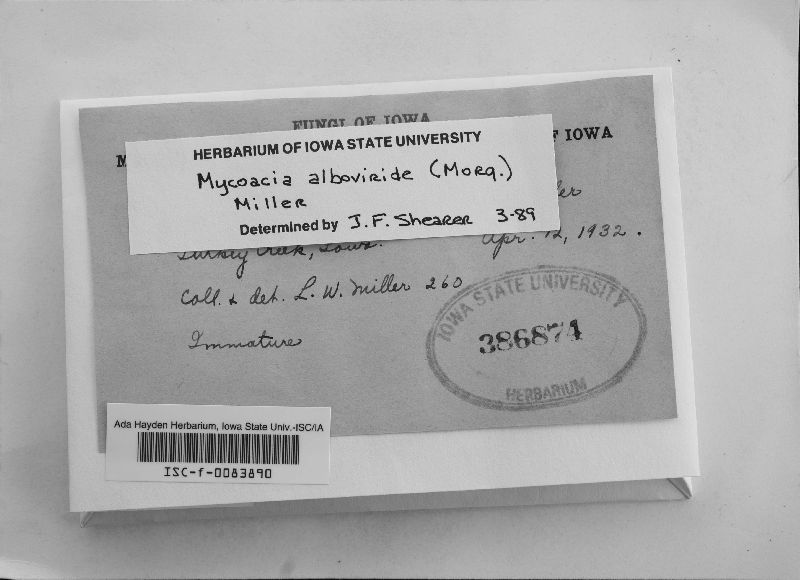 FUNGI OF IOWA
F IOWA
HERBARIUM OF IOWA STATE UNIVERSITY
Mycoacia alboviride (Morg.)
Miller
Determined by J.F. Shearer 3-89
Turkey Creek, Iowa. Apr. 12, 1932.
Coll. & det. L. W. Miller 260
Immature
IOWA STATE UNIVERSITY
386874
HERBARIUM
Ada Hayden Herbarium, Iowa State Univ.-ISC/IA
ISC-f-0083890